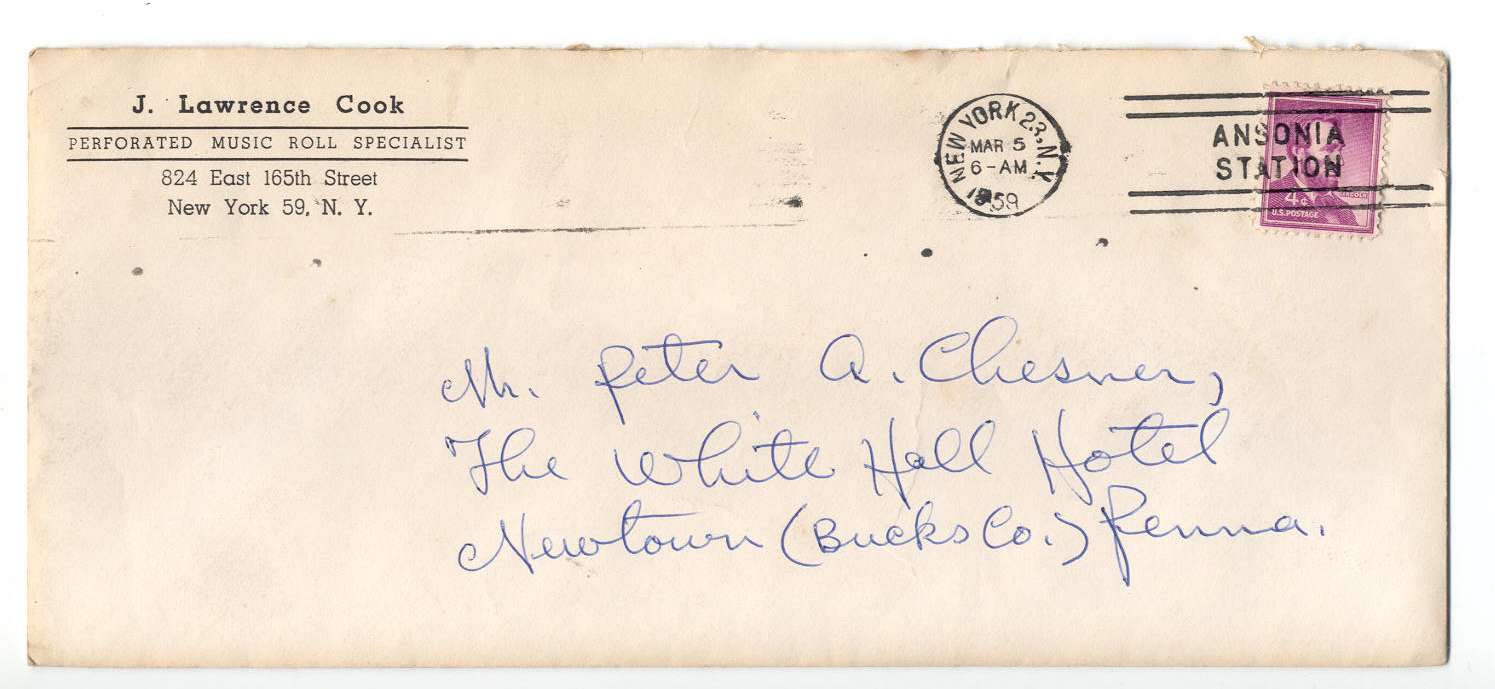 J. Lawrence Cook
PERFORATED MUSIC ROLL SPECIALIST
824 East 165th Street
New York 59, N. Y.
NEW YORK 23, N.Y.
MAR 5
6-AM
1959
ANSONIA
STATION
LINCOLN
4¢
U.S. POSTAGE
Mr. Peter A. Chesner,
The White Hall Hotel
Newtown (Bucks Co.) Penna.